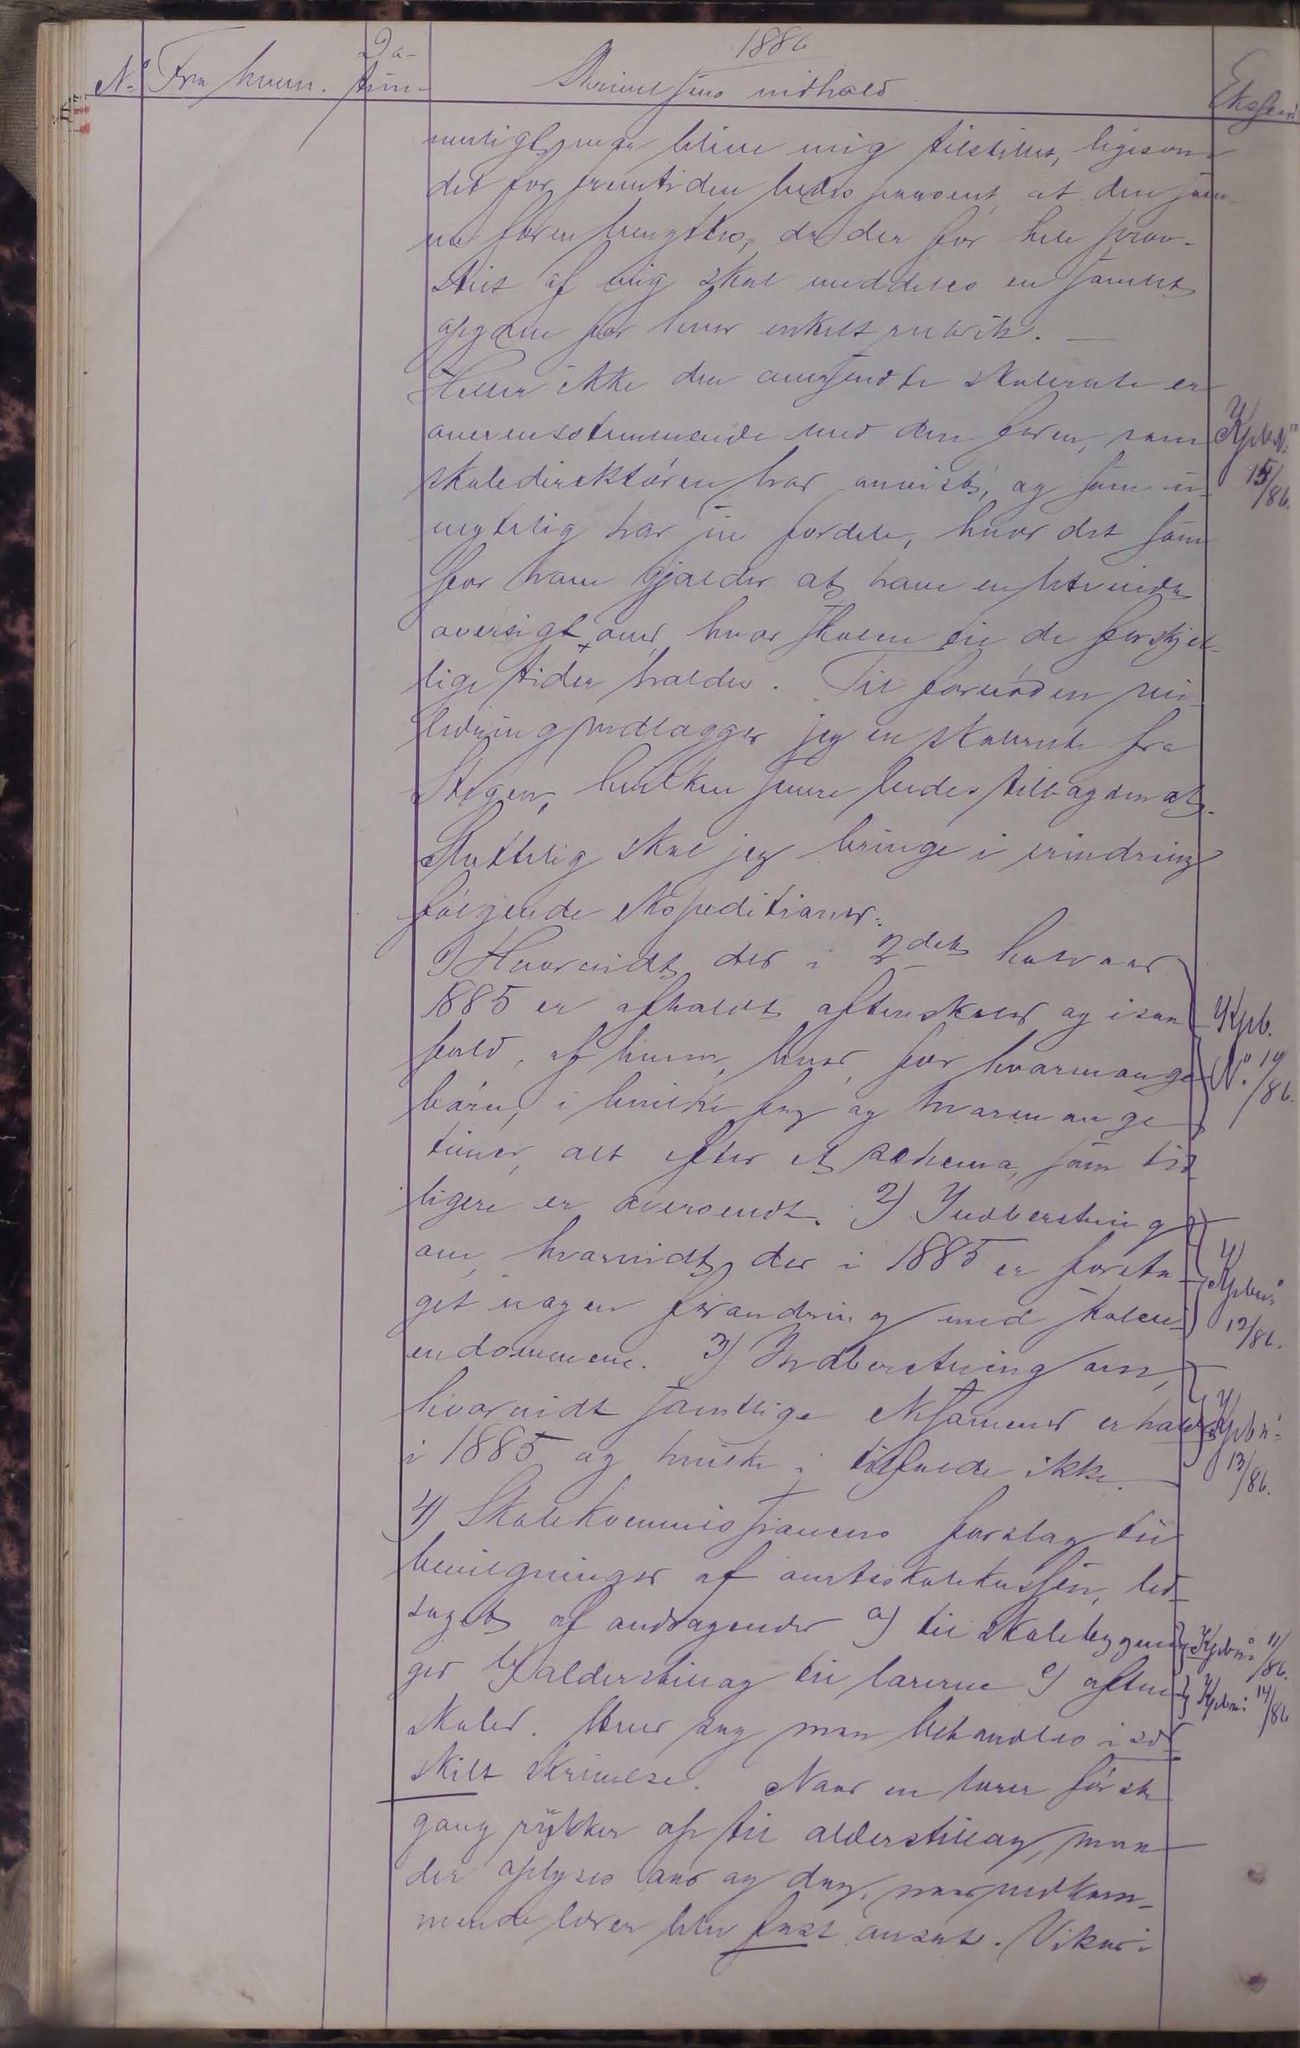 1886
No. Fra hvem. Datum. Skrivelsens indhold Eksped
muligt maa blive mig tilstillet, ligesom
det for fremtiden bedes paaseet, at den sam-
me form benyttes, da der for hele prov-
stiet af mig skal meddeles en samlet
opgave for hver enkelt rubrik. —
Heller ikke den anvendte skolerute er
overensstemmende med den form, som
skoledirektøren har anvist, og som u-
nægtelig har sin fordele, hvor det som
for ham gjælder at have en letvindt
oversigt over, hvor skolen til de forskjel-
lige tider holdes. Til fornøden vei-
ledning vedlægger jeg en skolerute fra
Stegen, hvilken senere bedes tilbagesendt.
Sluttelig skal jeg bringe i erindring
følgende ekspeditioner:
1) Hvorvidt der i 2det halvaar
1885 er afholdt aftenskoler og i saa
fald, af hvem, hvor, for hvormange
børn, i hvilke fag og hvormange
timer, alt efter et schema, som tid-
ligere er oversendt. 2) Indberetning
om, hvorvidt der i 1885 er foreta-
get nogen forandring med skolens
eiendommene. 3) Indberetning om,
hvorvidt samtlige eksamener er holdt
i 1885 og hvilke i tilfælde ikke.
4) Skolekommissionens forslag til
bevilgninger af amtsskolekassen, led-
saget af andragender a) til skolebygnin-
ger b) alderstillæg til lærerne c) aften-
skoler. Hver sag maa behandles i sær-
skilt skrivelse. Naar en lærer første
gang rykker op til alderstillæg, maa
der oplyses aar og dag, naar vedkom-
mende lærer blev fast ansat. Vikari-
Kpb. No.
15/86.
Kpb.
No. 19/86.
Kpb no
12/86.
Kpb n:
13/86.
Kpb n: 11/86.
Kpb n: 14/86